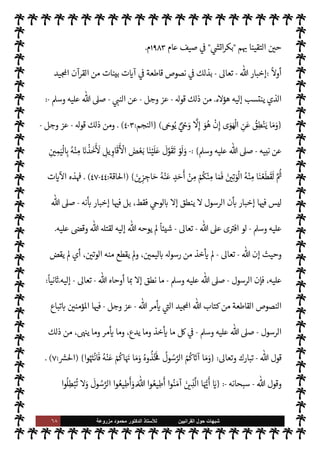 حين التقينا بهم "بكراتشي" في صيف عام ١٩٨٣م.
أولاً :إخبار الله - تعالى - بذلك في نصوص قاطعة في آيات بينات من القرآن المجيد
الذي ينتسب إليه هؤلاء. من ذلك قوله - عز وجل - عن النبي - صلى الله عليه وسلم -:
{وَمَا يَنْطِقُ عَنِ الْهَوَى إِنْ هُوَ إِلَّا وَحْيٌ يُوحَى} (النجم:٣-٤) . ومن ذلك قوله - عز وجل -
عن نبيه - صلى الله عليه وسلم) -: {وَلَوْ تَقَوَّلَ عَلَيْنَا بَعْضَ الأَقَاوِيلِ لَأَخَذْنَا مِنْهُ بِالْيَمِينِ
ثُمَّ لَقَطَعْنَا مِنْهُ الْوَتِينَ فَمَا مِنْكُمْ مِنْ أَحَدٍ عَنْهُ حَاجِزِينَ} (الحاقة:٤٤-٤٧) . فهذه الآيات
ليس فيها إخبار بأن الرسول لا ينطق إلا بالوحي فقط, بل فيها إخبار بأنه - صلى الله
عليه وسلم - لو افترى على الله - تعالى - شيئاً لم يوحه الله إليه لقتله الله وقضى عليه.
وحيث إن الله - تعالى - لم يأخذ من رسوله باليمين, ولم يقطع منه الوتين, أي لم يقض
عليه, فإن الرسول - صلى الله عليه وسلم - ما نطق إلا بما أوحاه الله - تعالى - إليه.ثانياً:
النصوص القاطعة من كتاب الله المجيد التي يأمر الله - عز وجل - فيها المؤمنين باتباع
الرسول - صلى الله عليه وسلم - في كل ما يأخذ وما يدع, وما يأمر وما ينهى, من ذلك
قول الله - تبارك وتعالى: {وَمَا آتَاكُمُ الرَّسُولُ فَخُذُوهُ وَمَا نَهَاكُمْ عَنْهُ فَانْتَهُوا} (الحشر:٧) .
وقول الله - سبحانه -: {يَا أَيُّهَا الَّذِينَ آمَنُوا أَطِيعُوا اللهَ وَأَطِيعُوا الرَّسُولَ وَلا تُبْطِلُوا
شبهات حول القرآنيين للأستاذ الدكتور محمود مزروعة ٦٨